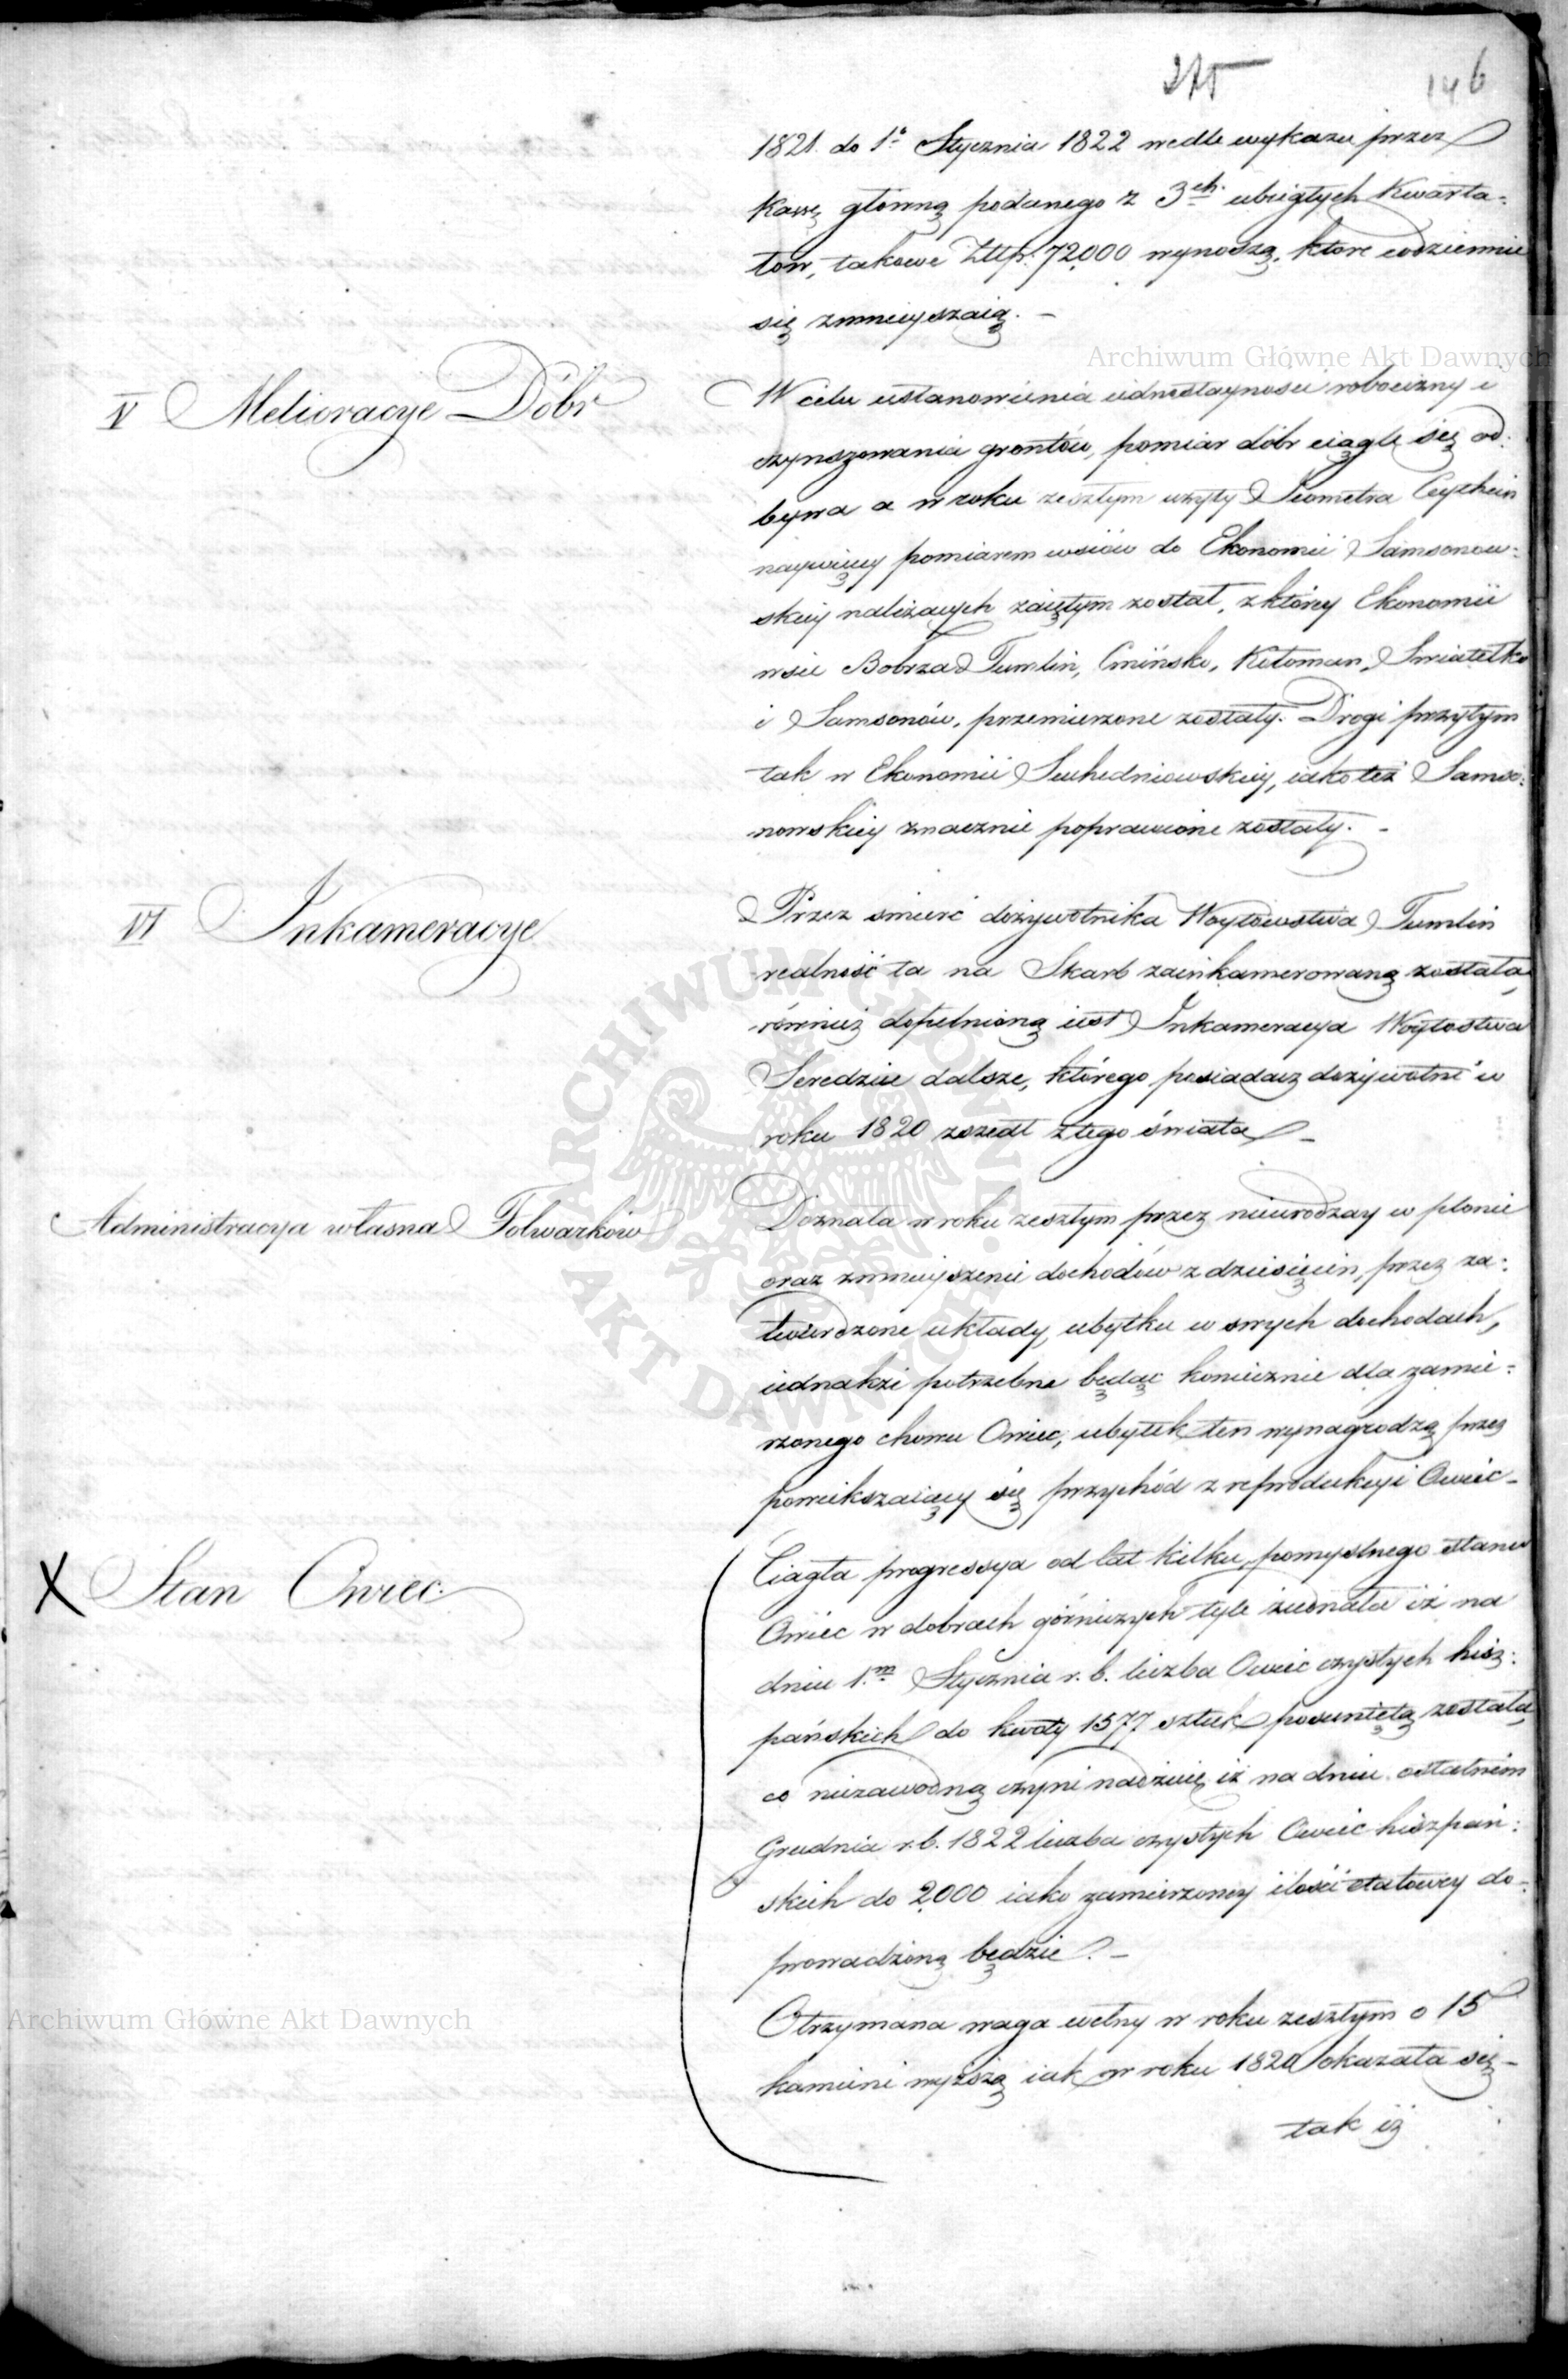 275
146
1821. do 1º Stycznia 1822 wedle wykazu przez
Kassę główną podanego z 3ch ubiegłych Kwarta-
łów, takowe Złtp. 72000 wynoszą, które codziennie
się zmnieyszaią. –
V Melioracye Dóbr
W celu ustanowienia iednostayności robocizny i
czynszowania grontów, pomiar dóbr ciągle się od-
bywa a w roku zeszłym użyty Jeometra
naywięcy pomiarem wsiów do Ekonomii Samsonow-
skiey należących zaiętym został, z którey Ekonomii
wsie Bobrza Tumlin, Cmińsko, Kołoman, Swiatełko
i Samsonów, przemierzone zostały. Drogi przytym
tak w Ekonomii Suchedniowskiey, iako też Samso-
nowskiey znacznie poprawione zostały. –
VI Inkameracye
Przez smierć dożywotnika Woytowstwa Tumlin
realność ta na Skarb zainkamerowaną została,
również dopełnioną iest Inkameracya Woytostwa
Seredzice dalsze, którego posiadacz dożywotni w
roku 1820 zszedł z tego świata –
Administracya własna Folwarków
Doznała w roku zeszłym przez nieurodzay w plonie
oraz zmnieyszenie dochodów z dziesięcin, przez za-
twierdzone układy, ubytku w swych dochodach,
iednakże potrzebne będąc koniecznie dla zamie-
rzonego chowu Owiec, ubytek ten wynagrodzą przez
powiekszaiący się przychód z reprodukcyi Owiec –
X Stan Owiec.
Ciagła progressya od lat kilku, pomyslnego stanu
Owiec w dobrach górniczych tyle ziednała iż na
dniu 1m Stycznia r. b. liczba Owiec czystych hisz-
pańskich do kwoty 1577 sztuk posuniętą została,
co niezawodną czyni nadzieię iż na dniu ostatnim
Grudnia r. b. 1822 liczba czystych Owiec hiszpań-
skich do 2000 iako zamierzoney ilości etatowey do-
prowadzoną będzie. –
Otrzymana waga wełny w roku zeszłym o 15
kamieni wyższą iak w roku 1820 okazała się –
tak iż
Archiwum Główne Akt Dawnych
Archiwum Główne Akt Dawnych
ARCHIWUM GŁÓWNE AKT DAWNYCH